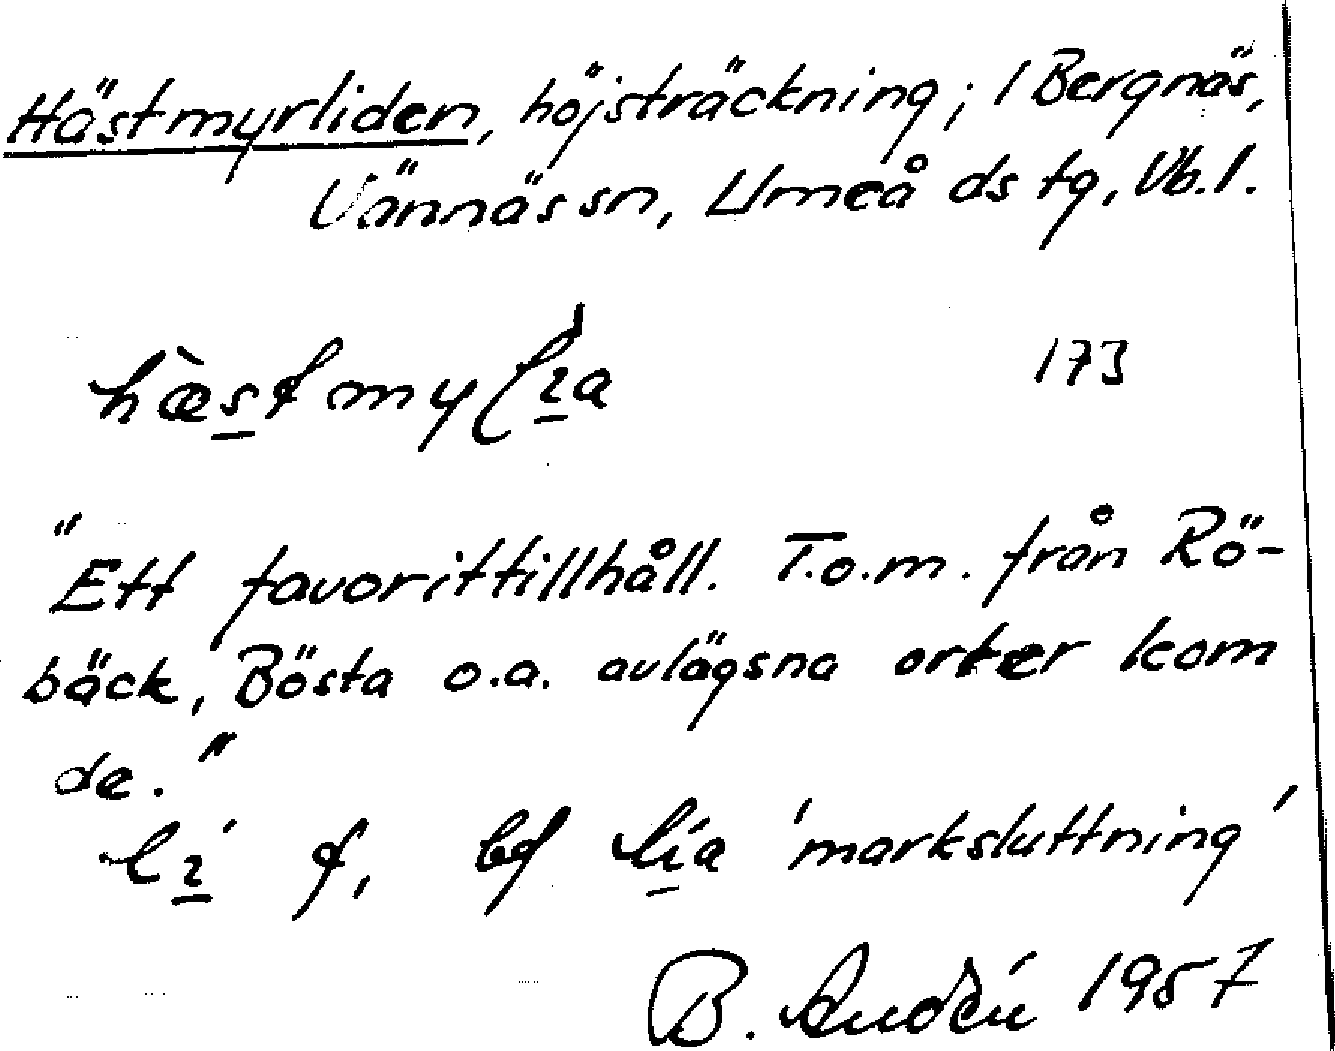 Hästmyrliden, höjsträckning; i Bergnäs,
Vännäs sn, Umeå ds tg, Vb. l.
173
"Ett favorittillhåll. T.o.m. från Rö-
bäck, Bösta o.a. avlägsna orter kom
de."
lí f, bf lía 'marksluttning'
B. 1957